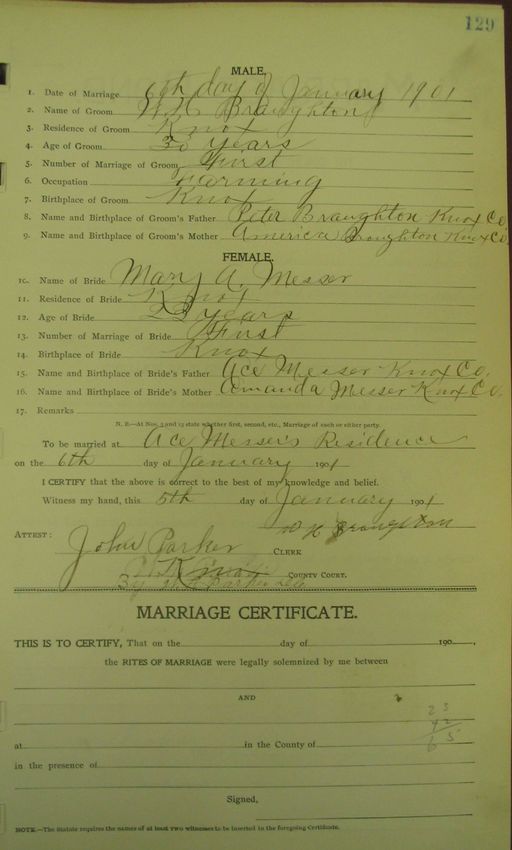 129
MALE.
1. Date of Marriage 6th day of January 1901
2. Name of Groom W. H. Braughton
3. Residence of Groom Knox
4. Age of Groom 30 years
5. Number of Marriage of Groom First
6. Occupation Farming
7. Birthplace of Groom Knox
8. Name and Birthplace of Groom's Father Peter Braughton Knox Co.
9. Name and Birthplace of Groom's Mother America Broughton Knox Co.
FEMALE.
10. Name of Bride Mary A. Messer
11. Residence of Bride Knox
12. Age of Bride 23 years
13. Number of Marriage of Bride First
14. Birthplace of Bride Knox
15. Name and Birthplace of Bride's Father Ace Messer Knox Co.
16. Name and Birthplace of Bride's Mother Amanda Messer Knox Co.
17. Remarks
N. B.—At Nos. 5 and 13 state whether first, second, etc., Marriage of each or either party.
To be married at Ace Messer's Residence
on the 6th day of January 1901
I CERTIFY that the above is correct to the best of my knowledge and belief.
Witness my hand, this 5th day of January 1901
W H Broughton
ATTEST: John Parker CLERK
Knox COUNTY COURT.
By Parker
MARRIAGE CERTIFICATE.
THIS IS TO CERTIFY, That on the day of 190 ,
the RITES OF MARRIAGE were legally solemnized by me between
AND
23
42
65
at in the County of
in the presence of
Signed,
NOTE.—The Statute requires the names of at least two witnesses to be inserted in the foregoing Certificate.